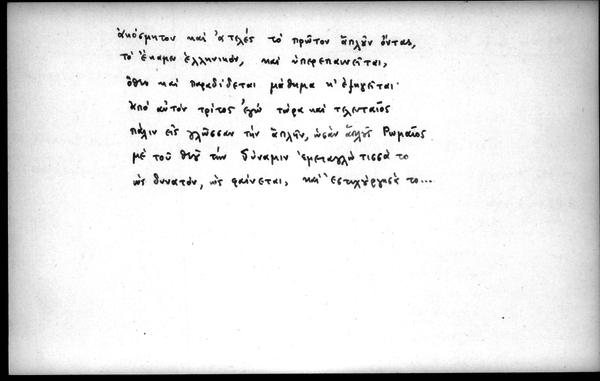 ἀκόσμητον καὶ ἀτελές τὸ πρῶτον ἁπλῦν ὄντας,
τὸ ἔκαμεν ἑλληνικόν, καὶ ὑπερεπαινεῖται,
ὅθεν καὶ παραδίδεται μάθημα κ' ἐξηγεῖται·
Ἀπὸ αὐτὸν τρίτος ἐγὼ τώρα καὶ τελευταῖος
πάλιν εἰς γλῶσσαν τὴν ἁπλῆν, ὡσὰν ἁπλῦς Ρωμαῖος
μὲ τοῦ θεῦ τὴν δύναμιν ἐμεταγλώττισσά το
ὡς δυνατόν, ὡς φαίνεται, καὶ ἐστιχύργησά το...